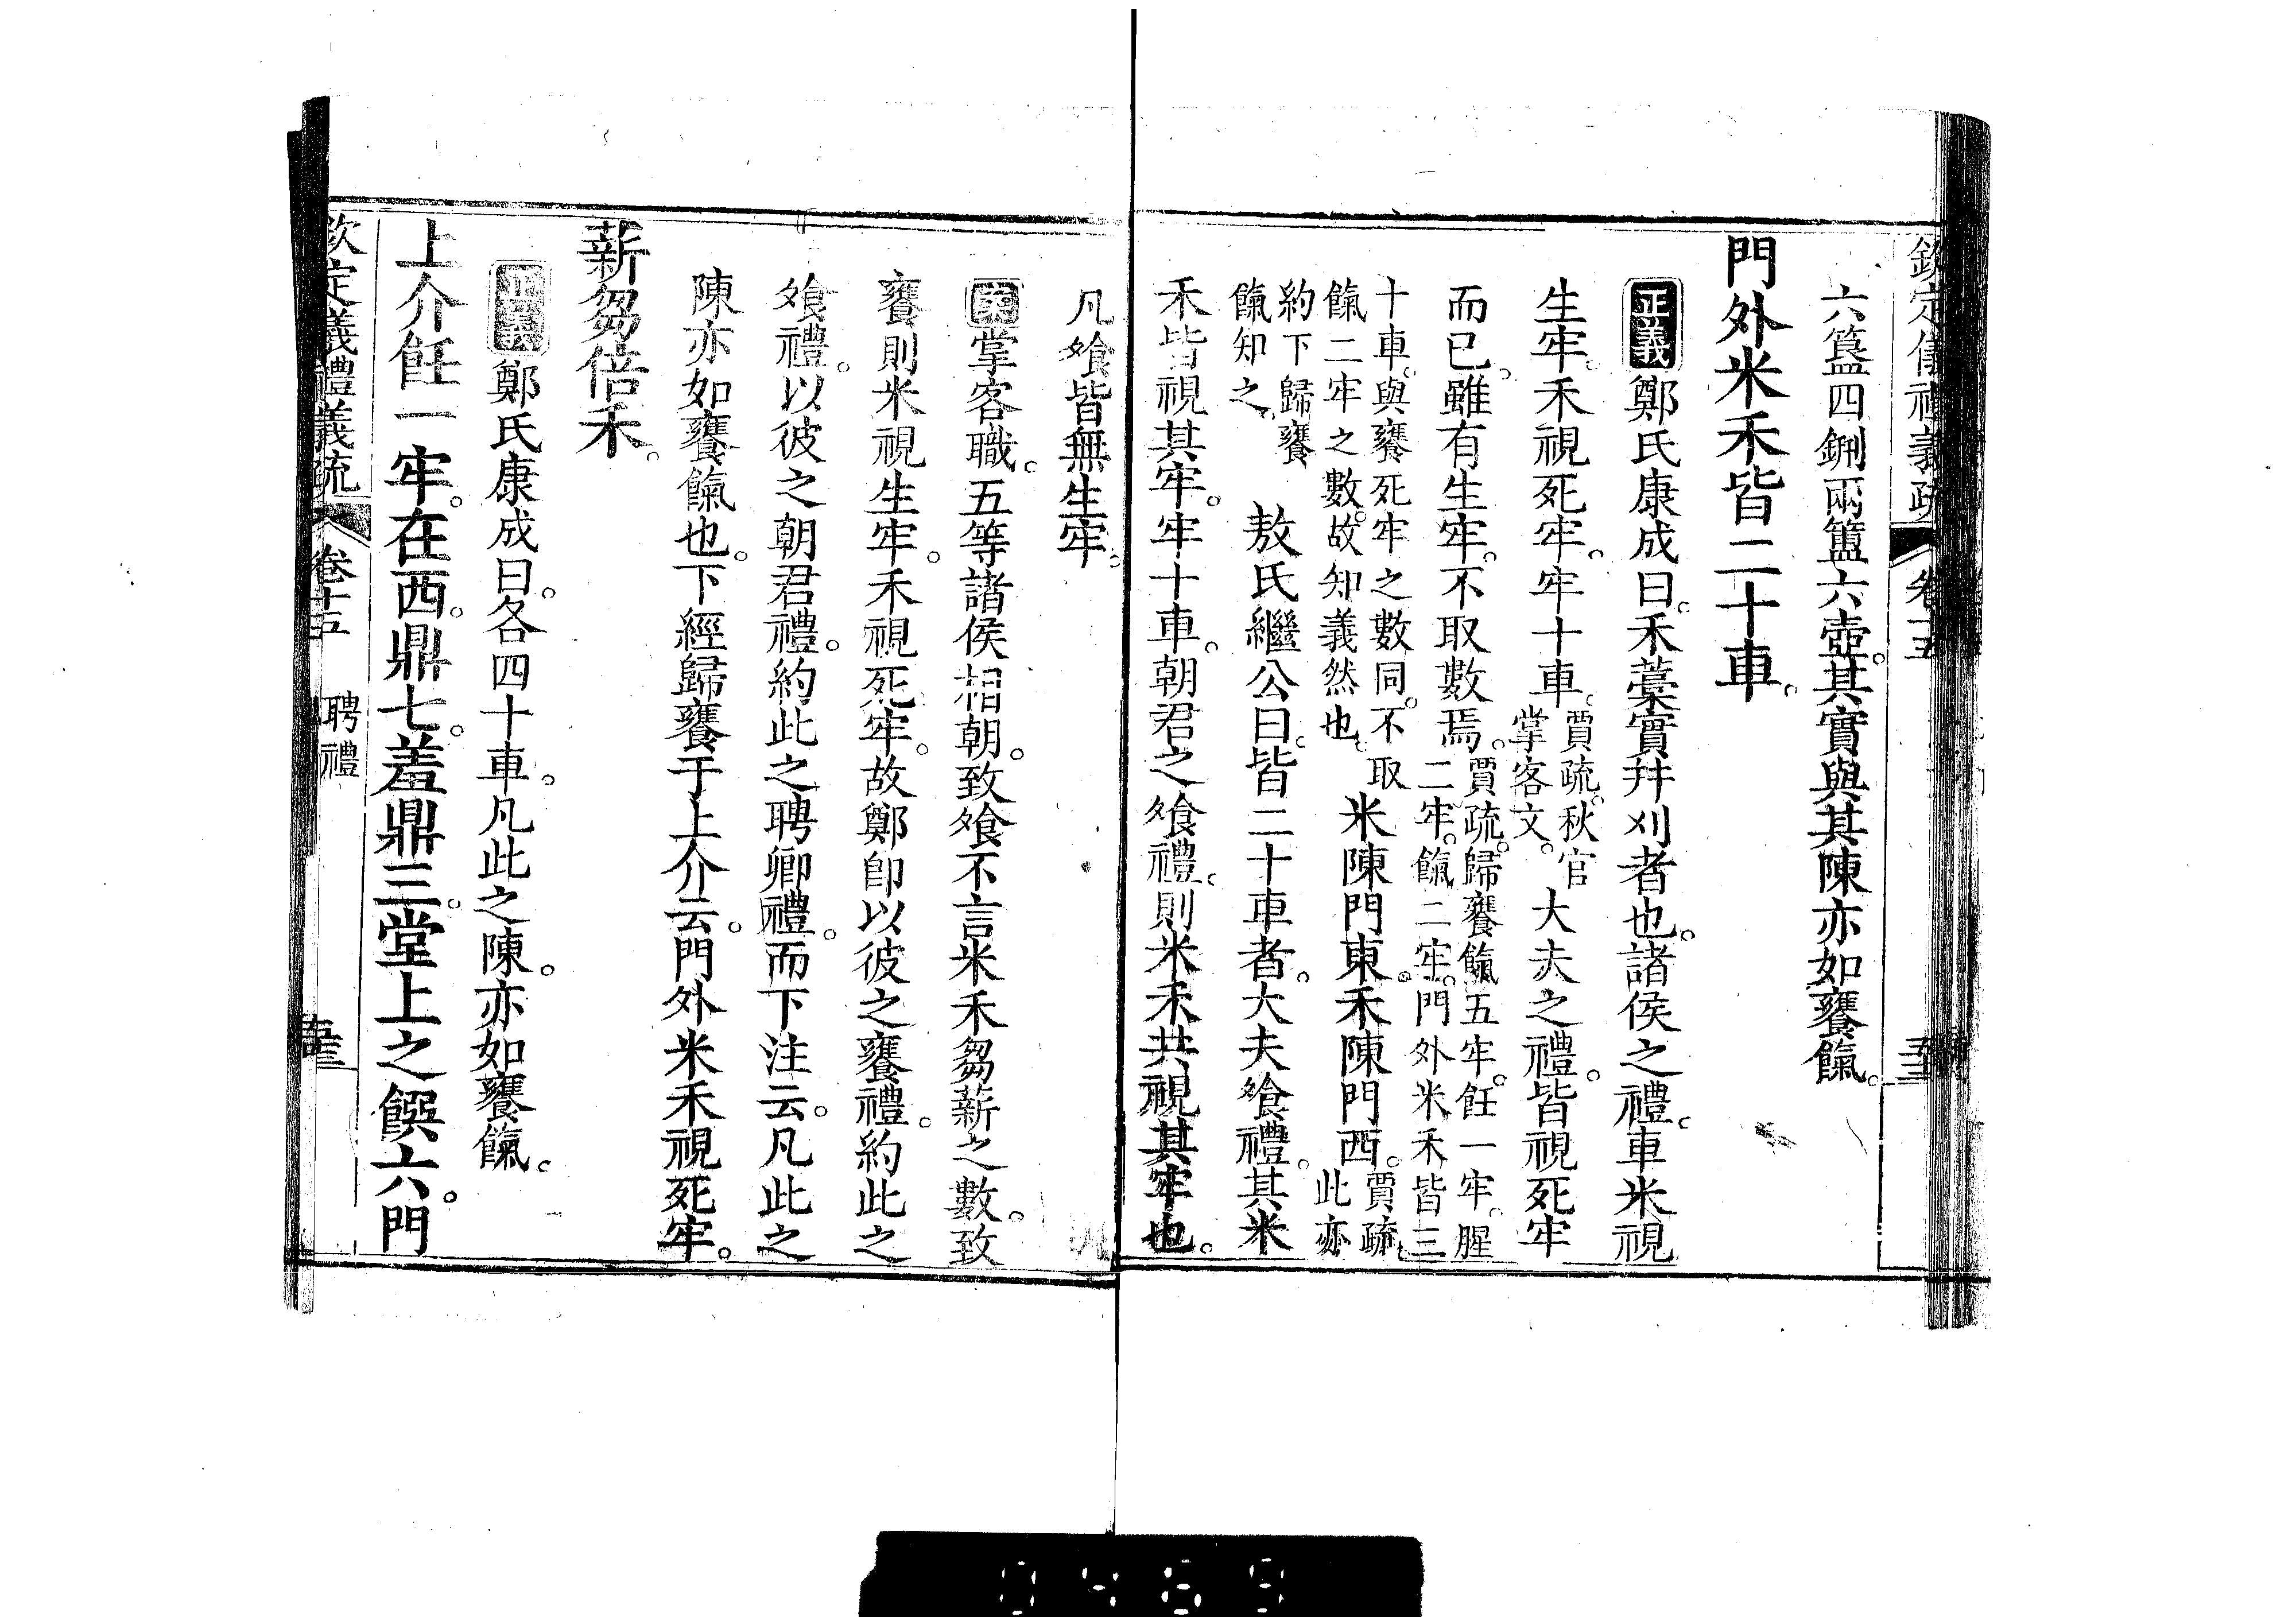 欽定儀禮義疏 卷十五
六簋四鉶兩簠六壺。其實與其陳亦如饔餼。
門外米禾皆二十車。
正義 鄭氏康成曰。禾藁實幷刈者也。諸侯之禮。車米視
生牢。禾視死牢。牢十車。賈疏。秋官掌客文。大夫之禮。皆視死牢
而已。雖有生牢。不取數焉。賈疏。歸饔餼五牢。飪一牢。腥二牢。餼二牢。門外米禾皆三
十車。與饔死牢之數同。不取餼二牢之數。故知義然也。米陳門東。禾陳門西。賈疏。此亦
約下歸饔餼知之。敖氏繼公曰。皆二十車者。大夫飧禮。其米
禾皆視其牢。牢十車。朝君之飧禮。則米禾共視其牢也。
凡飧皆無生牢。
案 掌客職。五等諸侯相朝。致飧不言米禾芻薪之數。致
饔則米視生牢。禾視死牢。故鄭卽以彼之饔禮。約此之
飧禮。以彼之朝君禮。約此之聘卿禮。而下注云。凡此之
陳亦如饔餼也。下經歸饔于上介云。門外米禾視死牢。
薪芻倍禾。
正義 鄭氏康成曰。各四十車。凡此之陳。亦如饔餼。
上介飪一牢。在西。鼎七。羞鼎三。堂上之饌六。門
欽定儀禮義疏 卷十五 聘禮
0469